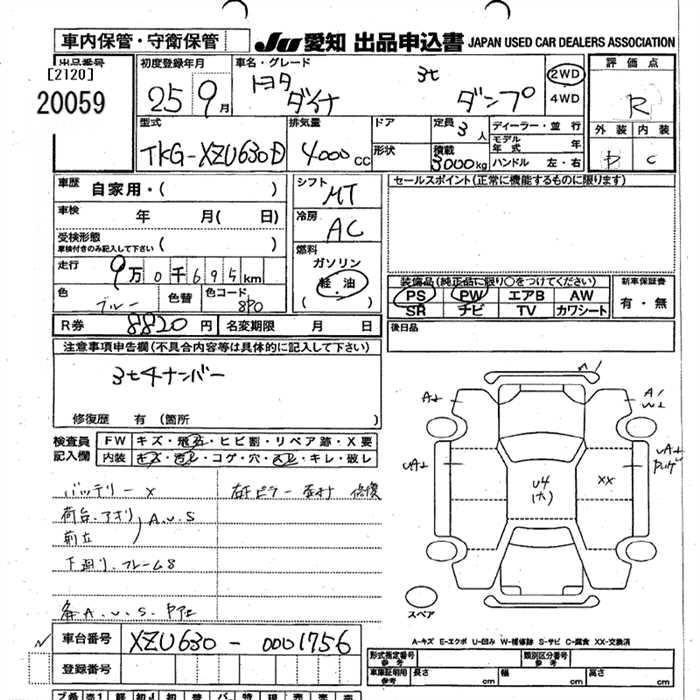 車内保管・守衛保管
JU 愛知 出品申込書 JAPAN USED CAR DEALERS ASSOCIATION
出品番号
[2120]
20059
初度登録年月
25 9月
車名・グレード
トヨタ
ダイナ
3t
ダンプ
2WD
4WD
評価点
R
外装 内装
D C
型式
TKG-XZU630D
排気量
4000cc
ドア
形状
定員 3人
積載
3000kg
ディーラー・並行
モデル年式 年
ハンドル 左・右
車歴 自家用・( )
車検 年 月( 日)
受検形態
車検付きのみ記入して下さい ( )
走行 9万0千695km
色 ブルー 色替 色コード 8P0
シフト MT
冷房 AC
燃料
ガソリン
軽油
( )
セールスポイント(正常に機能するものに限ります)
装備品(純正品に限り○をつけてください)
PS PW エアB AW
SR ナビ TV カワシート
新車保証書
有・無
R券 8820円 名変期限 月 日
後日品
注意事項申告欄(不具合内容等は具体的に記入して下さい)
3t4ナンバー
修復歴 有(箇所 )
検査員
記入欄
FW キズ・飛石・ヒビ割・リペア跡・X要
内装 キズ・汚レ・コゲ・穴・スレ・キレ・破レ
バッテリーX
右Fピラー 修復
荷台.アオリ
前立
A.U.S
下廻り.フレームS
各A.U.S
A/
U4
XX
スペア
A-キズ E-エクボ U-凹み W-補修跡 S-サビ C-腐食 XX-交換済
車台番号 XZU630-0001756
登録番号
形式指定番号
参考
類別区分番号
参考
車庫証明用
参考
長さ cm 幅 cm 高さ cm